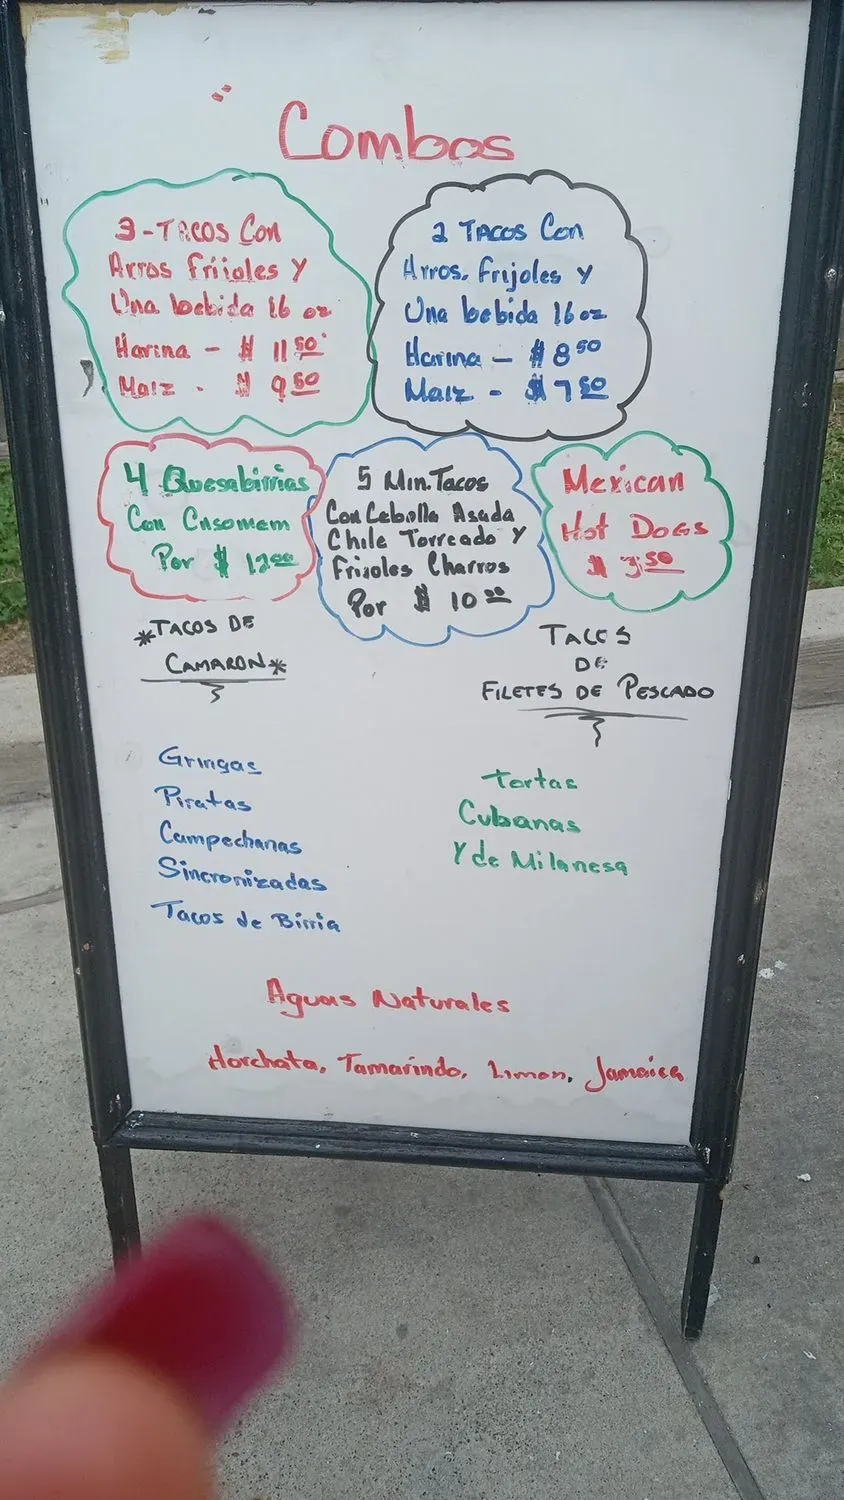 Combos
3-TACOS Con
Arros friioles Y
Una bebida 16 oz
Harina - $ 11 50
Maiz - $ 9 50
2 TACOS Con
Arros, frijoles Y
Una bebida 16 oz
Harina - $ 8 50
Maiz - $ 7 50
4 Quesabirrias
Con Cnsomem
Por $ 12 00
5 Min. Tacos
Con Cebolla Asada
Chile Torreado Y
Frijoles Charros
Por $ 10 00
Mexican
Hot DoGs
$ 3 50
*TACOS DE
CAMARON*
TACOS
DE
FILETES DE PESCADO
Gringas
Piratas
Campechanas
Sincronizadas
Tacos de Birria
Tortas
Cubanas
Y de Milanesa
Aguas Naturales
Horchata, Tamarindo, Limon, Jamaica